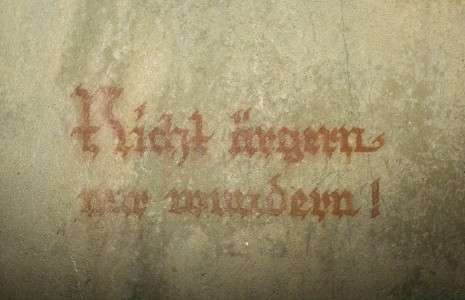 Nicht ärgern
nur wundern!